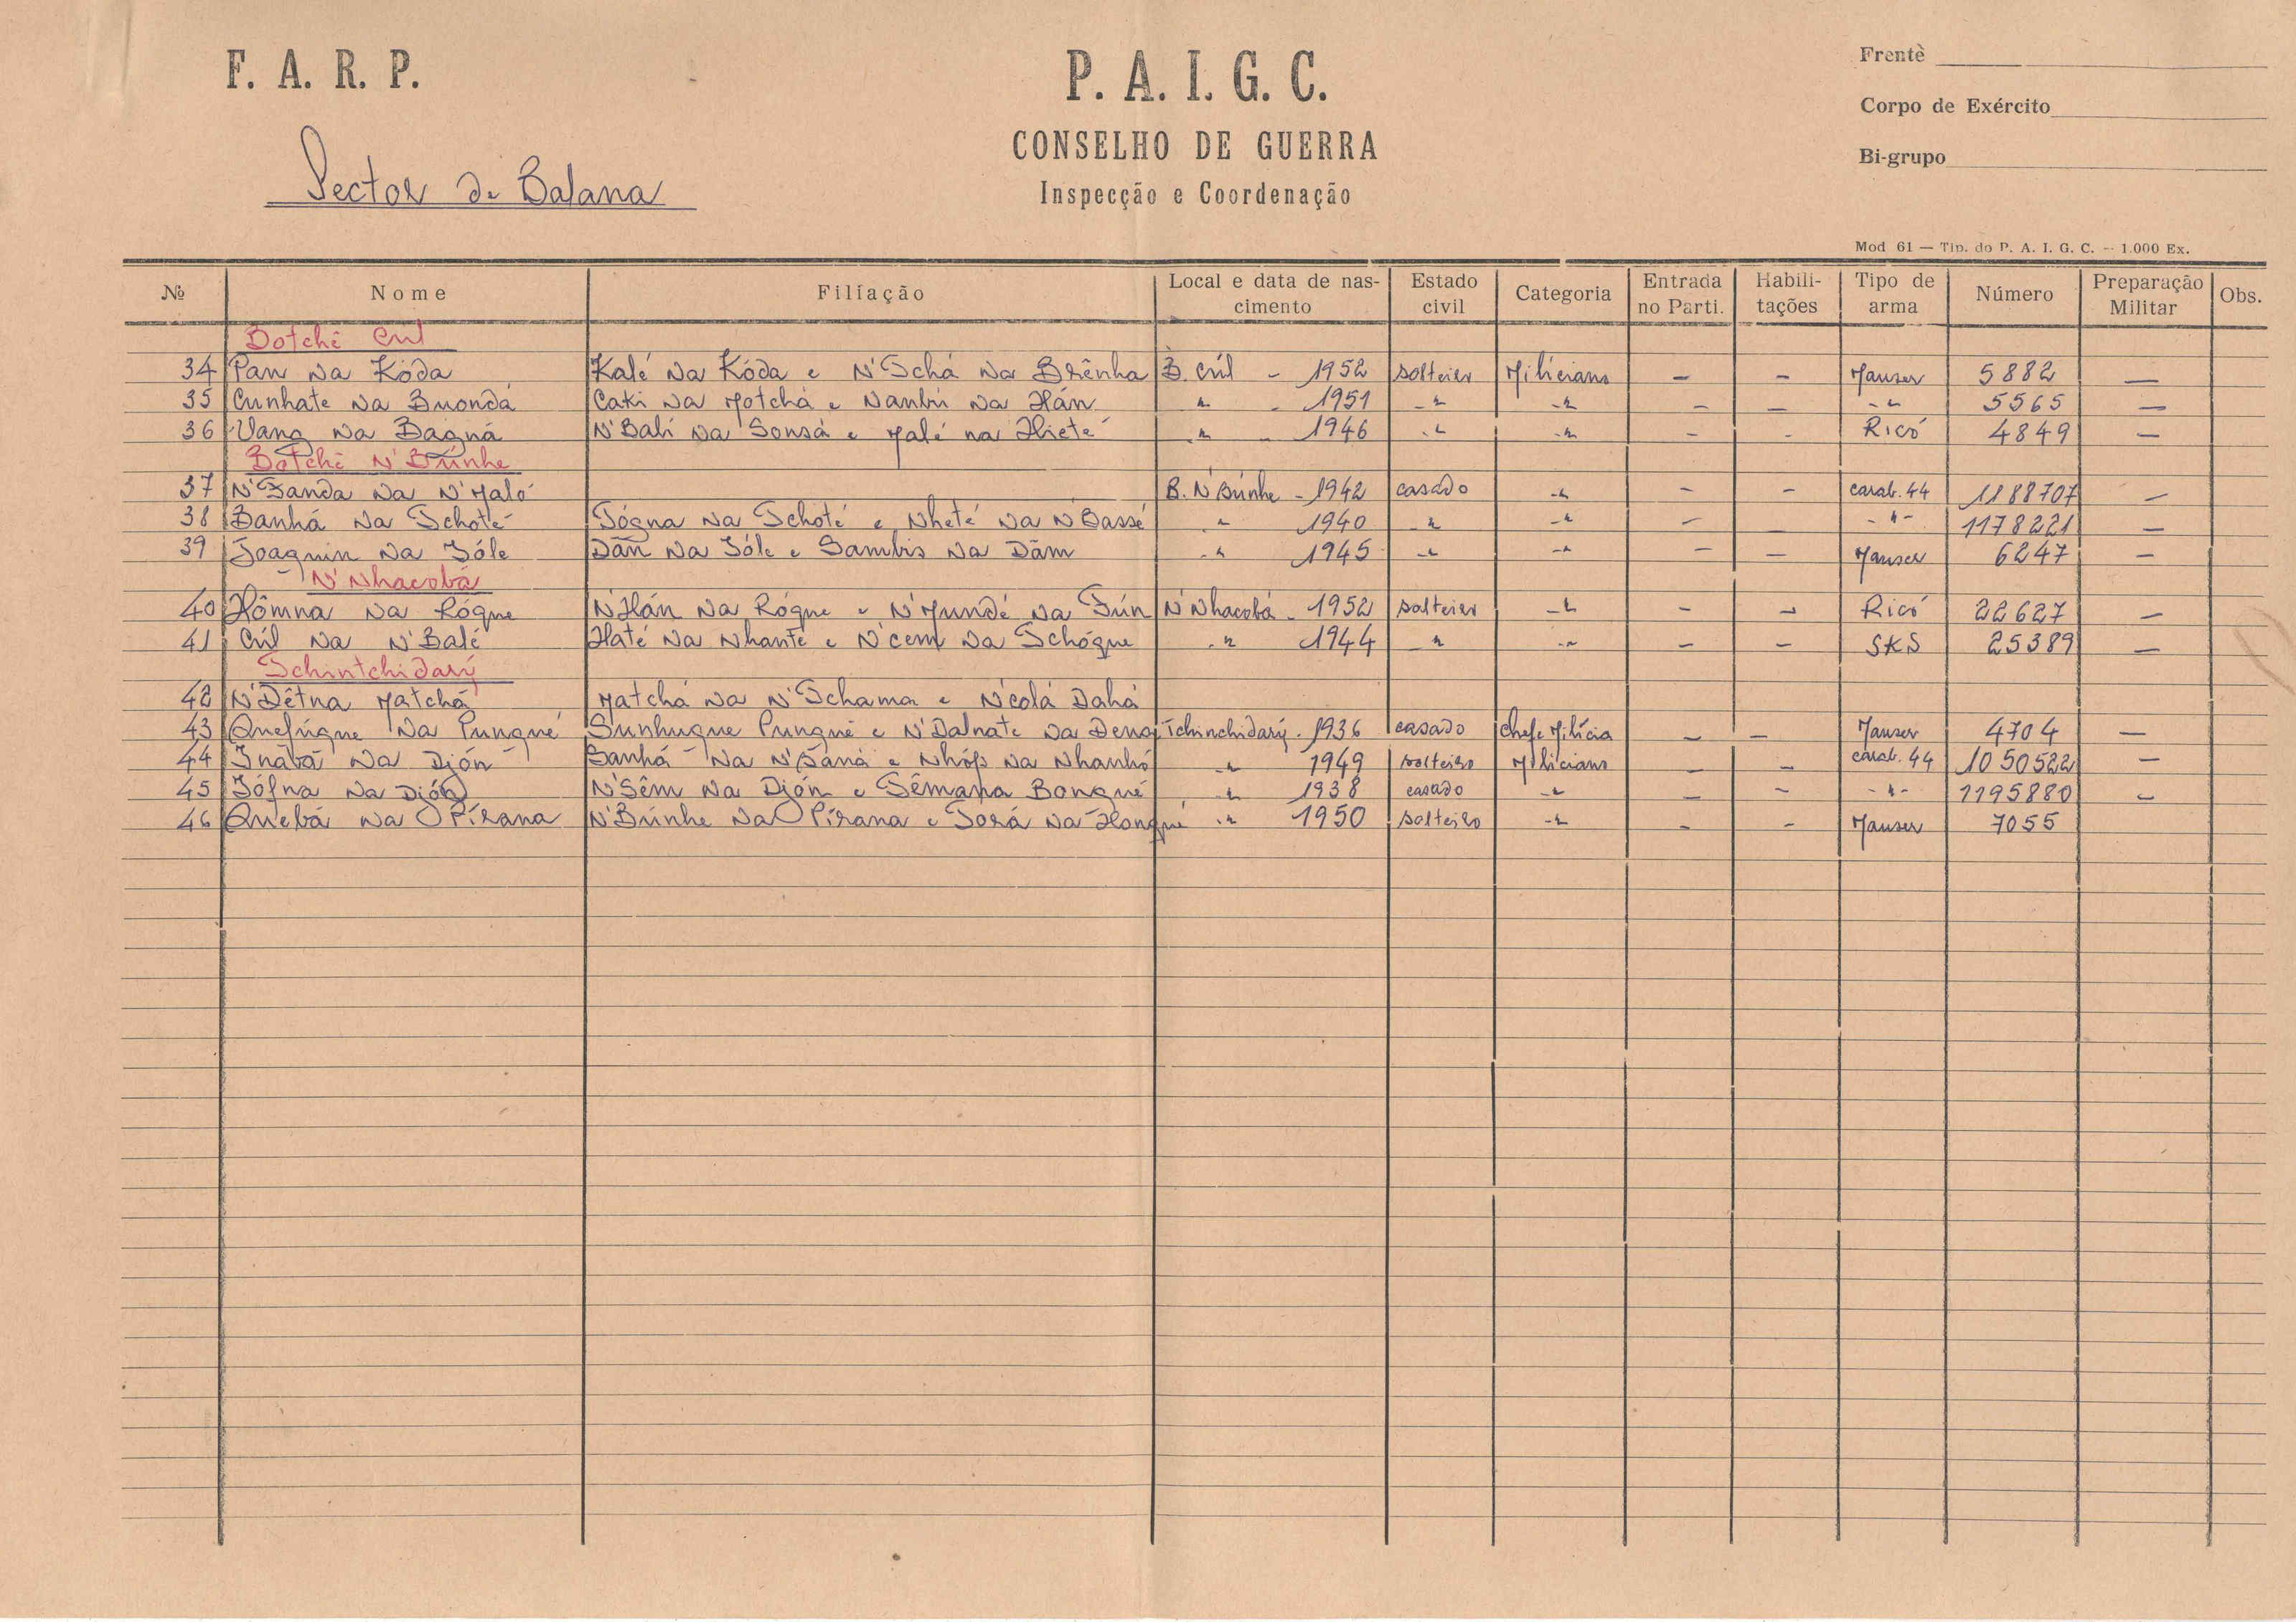 F. A. R. P.
P. A. I. G. C.
CONSELHO DE GUERRA
Inspecção e Coordenação
Sector de Balana
Frentè
Corpo de Exército
Bi-grupo
Mod 61 — Tip. do P. A. I. G. C. — 1.000 Ex.
№ Nome Filiação Local e data de nas-cimento Estado civil Categoria Entrada no Parti. Habili-tações Tipo de arma Número Preparação Militar Obs.
Botchê Cúl
34 Pan Na Kóda Kalé Na Kóda e N'Tchá Na Brênha B. Cúl - 1952 solteiro Miliciano — — Mauser 5882 —
35 Cunhate Na Buonda Caki Na Motchá e Nanbú Na Hán " - 1951 -"- -"- — — -"- 5565 —
36 Vang Na Bagná N'Bali Na Sonsá e Malé na Hieté " - 1946 -"- -"- — - Ricó 4849 —
Botchê N'Búnhe
37 N'Fanda Na N'Malo B. N'Búnhe - 1942 casado -"- — — carab. 44 1188707 —
38 Banhá Na Tchoté Tógna Na Tchoté e Nheté Na N'Bassé " 1940 -"- -"- — — -"- 1178221 —
39 Joaquin Na Ióle Dãn Na Ióle e Sambis Na Dãm " 1945 -"- -"- — — Mauser 6247 —
N'Nhacobá
40 Hômna Na Rógue N'Hán Na Rógue e N'Mundé Na Tún N'Nhacobá - 1952 solteiro -"- — — Ricó 22627 —
41 Cúl Na N'Balé Haté Na Nhante e N'cem Na Tchógue " 1944 " -"- — — SKS 25389 —
Tchintchidarý
42 N'Dêtna Matchá Matchá Na N'Tchama e N'colá Dahá
43 Quefúgue Na Pungué Sunhugue Pungué e N'Dalnate Na Dena Tchinchidarý - 1936 casado Chefe Milícia — — Mauser 4704 —
44 Inãbã Na Djón Banhá Na N'Saná e Nhóp Na Nhanhó " 1949 solteiro Miliciano — — carab. 44 1050522 —
45 Iófna Na Djón N'Sêm Na Djón e Sêmana Bongué " 1938 casado -"- — — -"- 1195880 —
46 Quebá Na Pírana N'Búnhe Na Pírana e Torá Na Hongué " 1950 solteiro -"- — — Mauser 7055